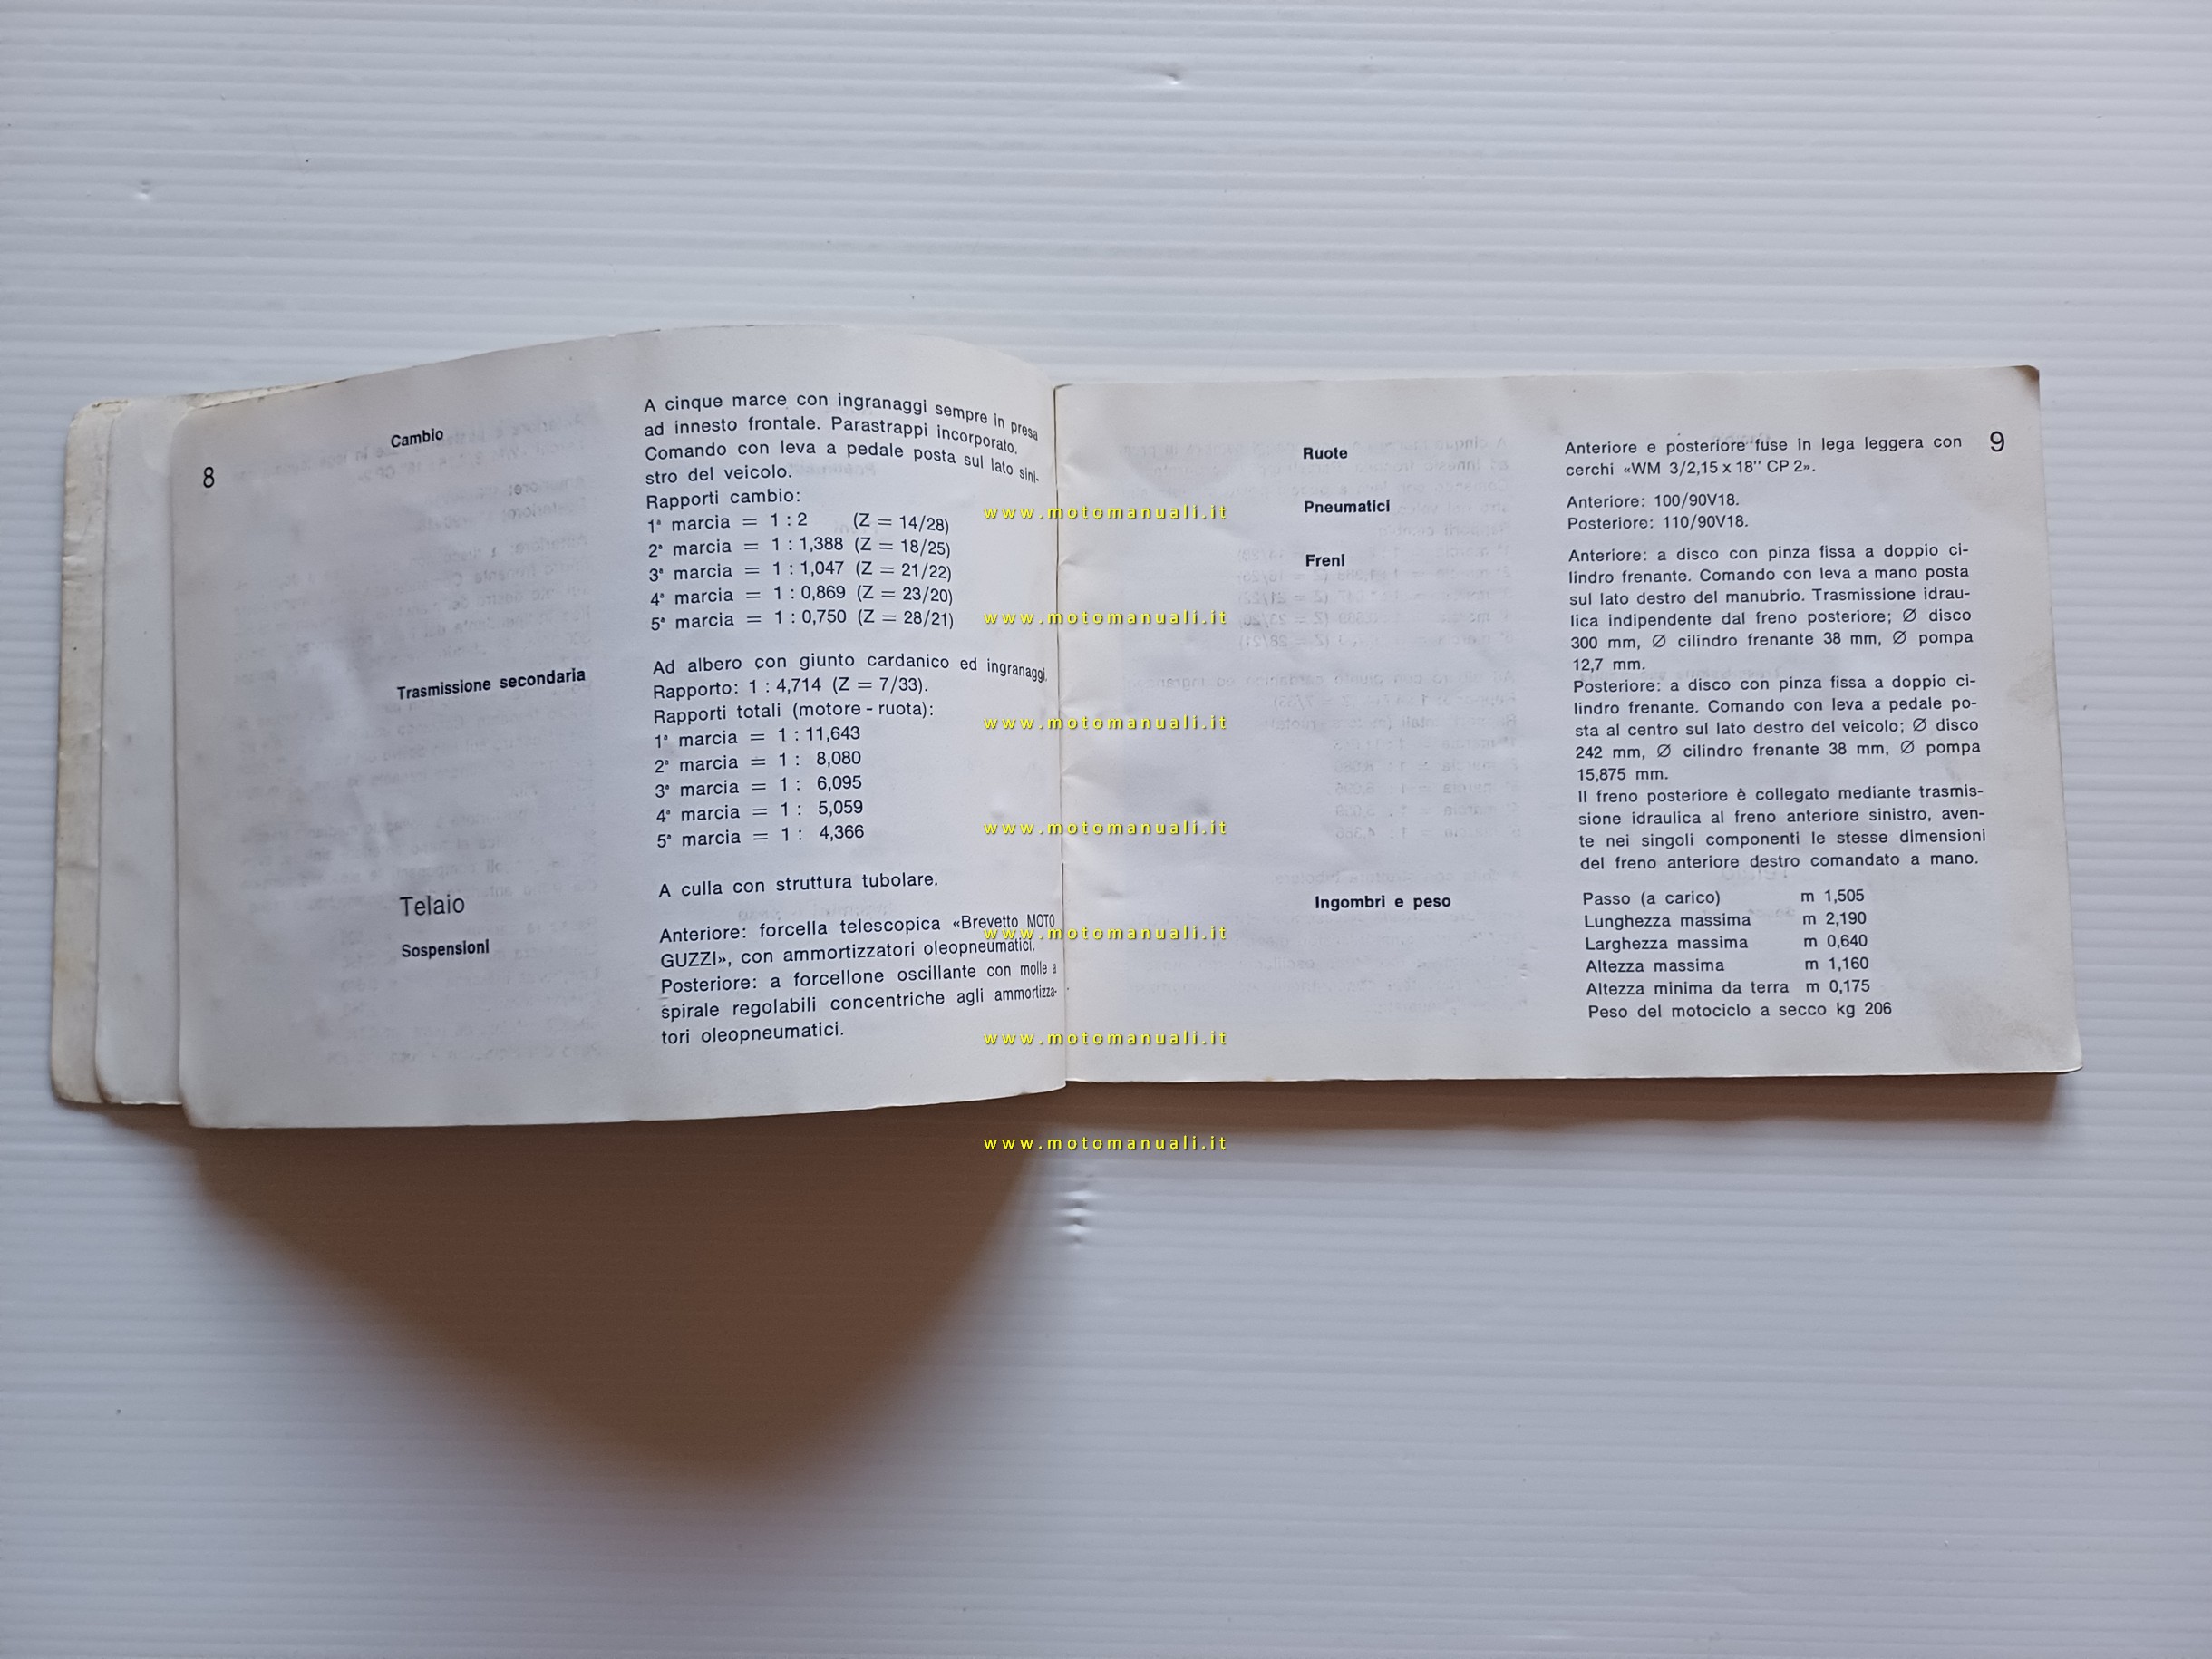 8
Cambio
A cinque marce con ingranaggi sempre in presa
ad innesto frontale. Parastrappi incorporato.
Comando con leva a pedale posta sul lato sini-
stro del veicolo.
Rapporti cambio:
1ª marcia = 1 : 2 (Z = 14/28)
2ª marcia = 1 : 1,388 (Z = 18/25)
3ª marcia = 1 : 1,047 (Z = 21/22)
4ª marcia = 1 : 0,869 (Z = 23/20)
5ª marcia = 1 : 0,750 (Z = 28/21)
Trasmissione secondaria
Ad albero con giunto cardanico ed ingranaggi.
Rapporto: 1 : 4,714 (Z = 7/33).
Rapporti totali (motore - ruota):
1ª marcia = 1 : 11,643
2ª marcia = 1 : 8,080
3ª marcia = 1 : 6,095
4ª marcia = 1 : 5,059
5ª marcia = 1 : 4,366
Telaio
A culla con struttura tubolare.
Sospensioni
Anteriore: forcella telescopica «Brevetto MOTO
GUZZI», con ammortizzatori oleopneumatici.
Posteriore: a forcellone oscillante con molle a
spirale regolabili concentriche agli ammortizza-
tori oleopneumatici.
9
Ruote
Anteriore e posteriore fuse in lega leggera con
cerchi «WM 3/2,15 x 18" CP 2».
Pneumatici
Anteriore: 100/90V18.
Posteriore: 110/90V18.
Freni
Anteriore: a disco con pinza fissa a doppio ci-
lindro frenante. Comando con leva a mano posta
sul lato destro del manubrio. Trasmissione idrau-
lica indipendente dal freno posteriore; Ø disco
300 mm, Ø cilindro frenante 38 mm, Ø pompa
12,7 mm.
Posteriore: a disco con pinza fissa a doppio ci-
lindro frenante. Comando con leva a pedale po-
sta al centro sul lato destro del veicolo; Ø disco
242 mm, Ø cilindro frenante 38 mm, Ø pompa
15,875 mm.
Il freno posteriore è collegato mediante trasmis-
sione idraulica al freno anteriore sinistro, aven-
te nei singoli componenti le stesse dimensioni
del freno anteriore destro comandato a mano.
Ingombri e peso
Passo (a carico) m 1,505
Lunghezza massima m 2,190
Larghezza massima m 0,640
Altezza massima m 1,160
Altezza minima da terra m 0,175
Peso del motociclo a secco kg 206
www.motomanuali.it
www.motomanuali.it
www.motomanuali.it
www.motomanuali.it
www.motomanuali.it
www.motomanuali.it
www.motomanuali.it